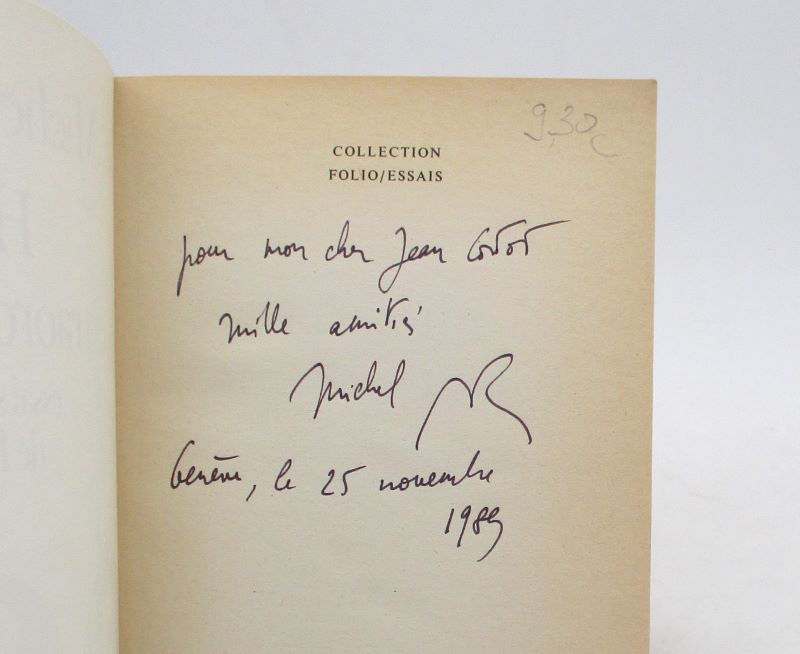 9,30
COLLECTION
FOLIO/ESSAIS
pour mon cher Jean
mille amitiés
Michel
Genève, le 25 novembre
1989